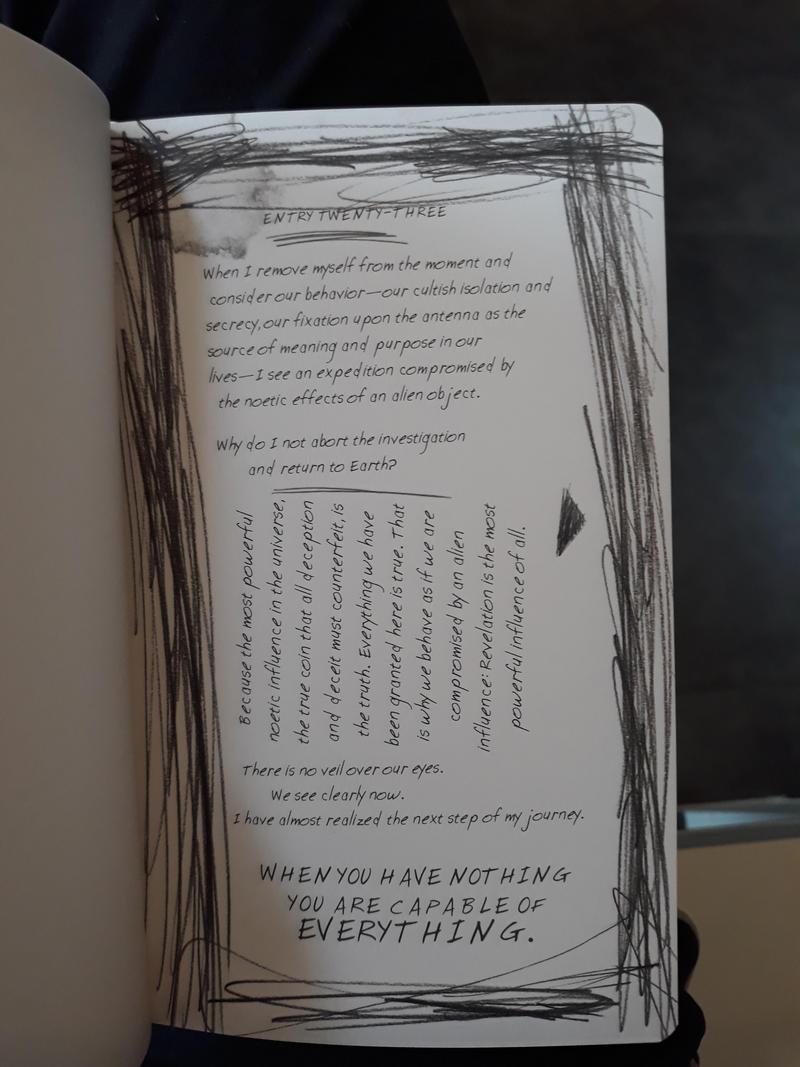 ENTRY TWENTY-THREE
When I remove myself from the moment and
consider our behavior—our cultish isolation and
secrecy, our fixation upon the antenna as the
source of meaning and purpose in our
lives—I see an expedition compromised by
the noetic effects of an alien object.
Why do I not abort the investigation
and return to Earth?
Because the most powerful
noetic influence in the universe,
the true coin that all deception
and deceit must counterfeit, is
the truth. Everything we have
been granted here is true. That
is why we behave as if we are
compromised by an alien
influence: Revelation is the most
powerful influence of all.
There is no veil over our eyes.
We see clearly now.
I have almost realized the next step of my journey.
WHEN YOU HAVE NOTHING
YOU ARE CAPABLE OF
EVERYTHING.